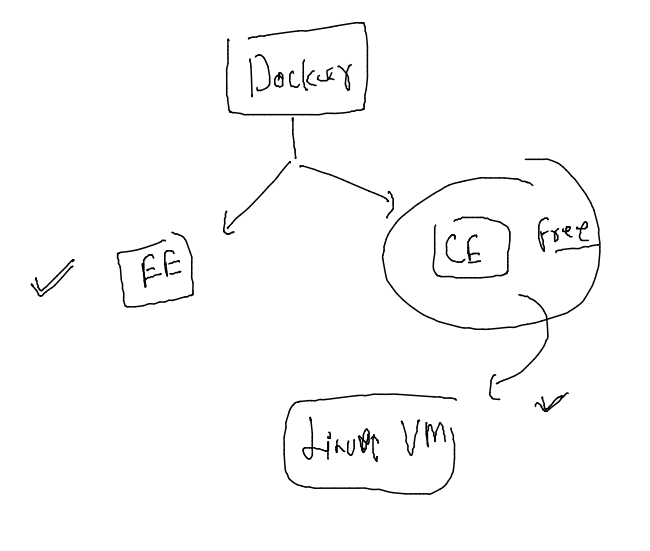 Docker
EE
CE
free
Linux VM